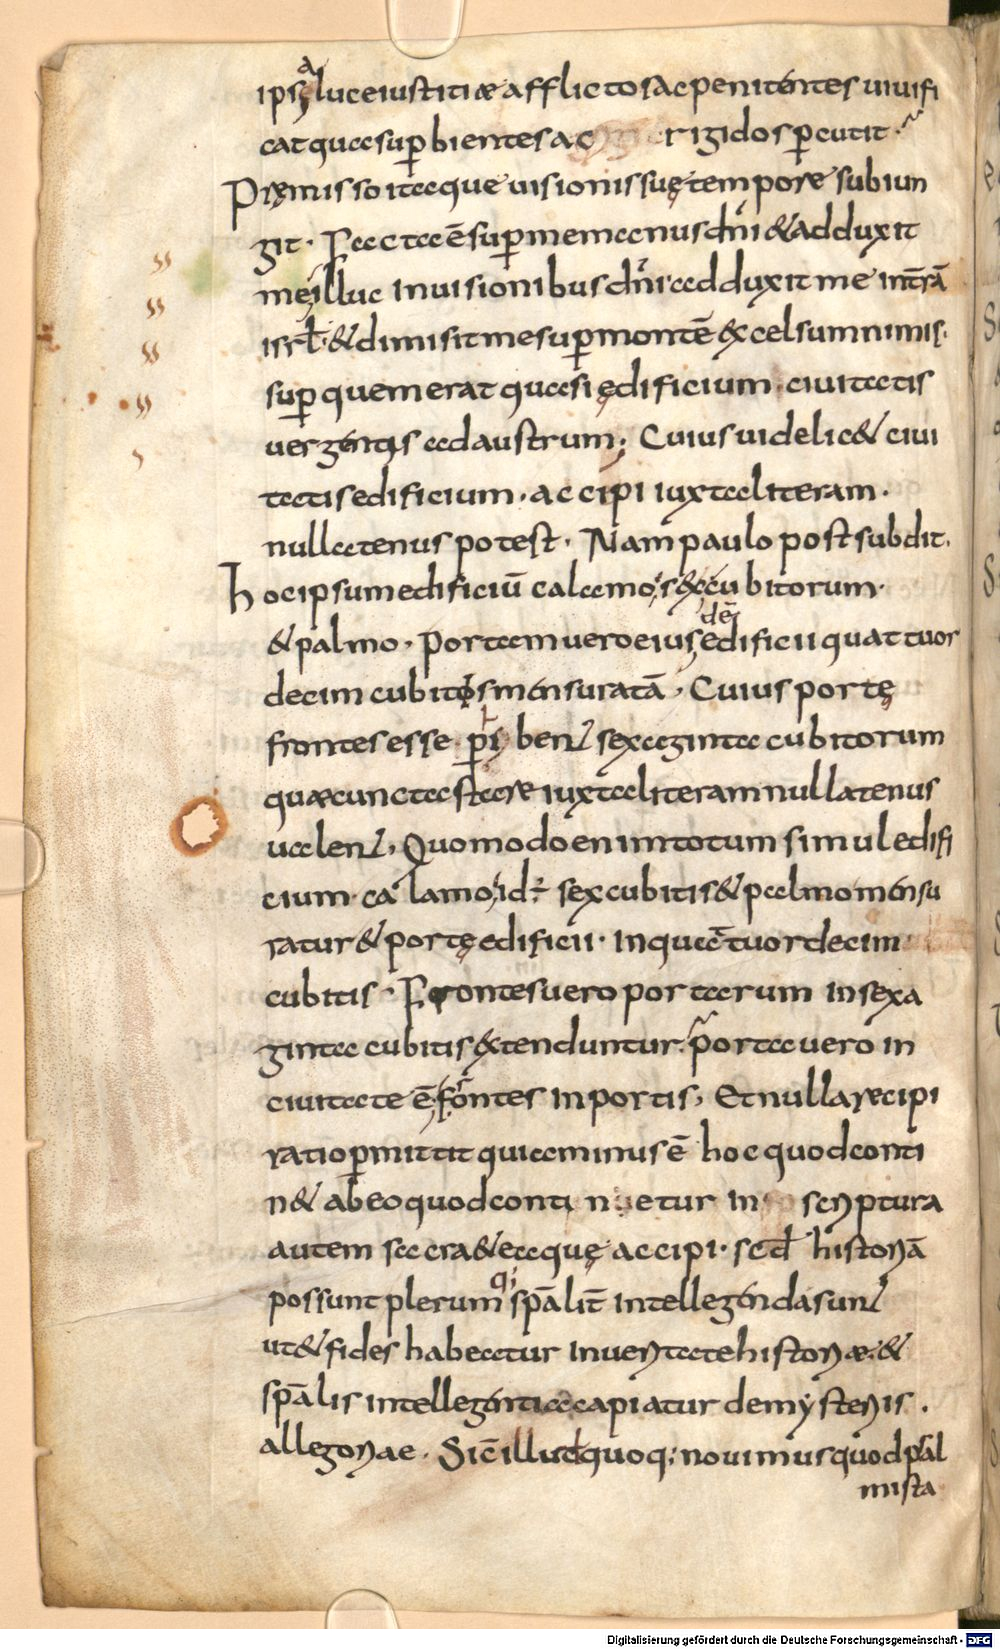 ipsa luce iustitiæ afflictos ac penitentes uiuifi
cat qua sup̄bientes ac rigidos p̄cutit.
Pręmisso itaque uisionis suę tempore subiun
git. Facta ē sup̄ me manus dn̄i & adduxit
me illuc in uisionibus dn̄i adduxit me in trā
isrl̄. & dimisit me sup̄ montē excelsum nimis.
sup̄ quem erat quasi ędificium ciuitatis
uergentis ad austrum; Cuius uidelic& ciui
tatis edificium. accipi iuxta literam.
nullatenus potest. Nam paulo post subdit.
hoc ipsum edificiū calamo sex cubitorum.
& palmo. Portam uero eiusdē edificii quattuor
decim cubitos mensuratā. Cuius portę
frontes esse p̄hiben̄ sexaginta cubitorum
quæ cuncta stare iuxta literam nullatenus
ualen̄. Quomodo enim totum simul edifi
cium calamo id ÷ sex cubitis & palmo mensu
ratur & portę edificii. in quattuordecim
cubitis. Frontes uero portarum in sexa
ginta cubitis extenduntur. porta uero in
ciuitate ē frontes in portis, Et nulla recipi
ratio p̄mittit quia minus ē hoc quod conti
n& ab eo quod continetur in scriptura
autem sacra & eaquę accipi. scd̄ historiā
possunt plerumq; sp̄alit̄ intellegenda sun̄
ut & fides habeatur in ueritate historiæ. &
sp̄alis intellegentia capiatur de mysteriis.
allegoriae. Sic illud quoq; nouimus quod psal
mista
Digitalisierung gefördert durch die Deutsche Forschungsgemeinschaft - DFG